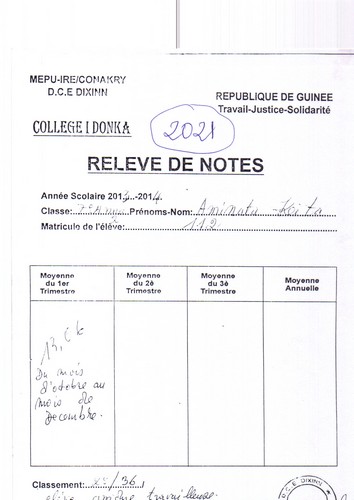 MEPU-IRE/CONAKRY
D.C.E DIXINN
REPUBLIQUE DE GUINEE
Travail-Justice-Solidarité
COLLEGE I DONKA
2021
RELEVE DE NOTES
Année Scolaire 2013-2014
Classe: 7e Prénoms-Nom: Aminata Keita
Matricule de l'élève: 112
Moyenne du 1er Trimestre
Moyenne du 2è Trimestre
Moyenne du 3è Trimestre
Moyenne Annuelle
Du mois
d'octobre au
mois de
Decembre.
Classement: /36
élève travailleuse.
D.C.E DIXINN